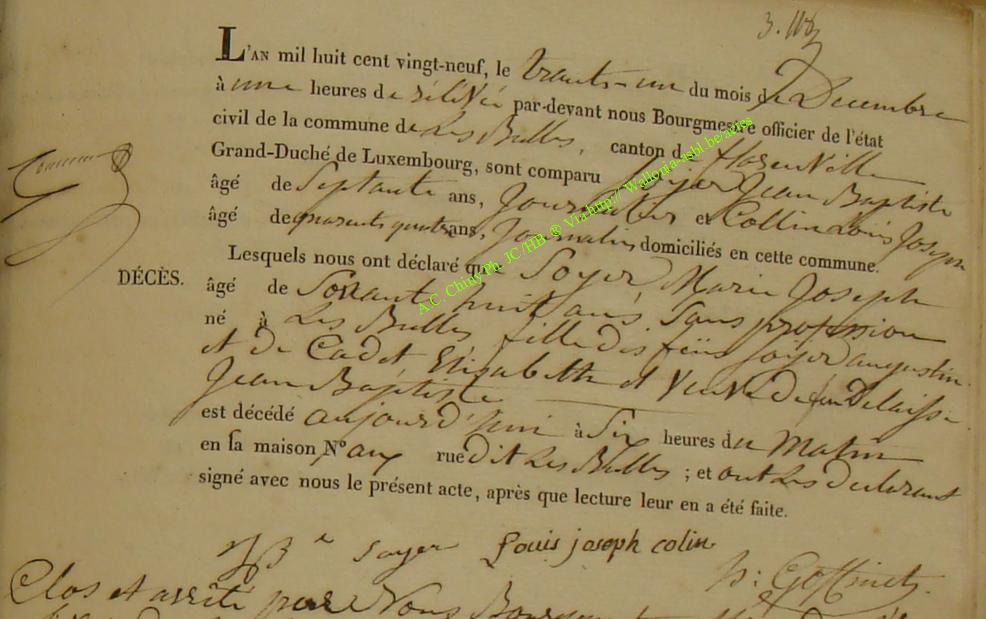 L'AN mil huit cent vingt-neuf, le trante-un du mois de Decembre
à une heures de rélévée par-devant nous Bourgmestre officier de l'état
civil de la commune de Les Bulles, canton de florenville
Grand-Duché de Luxembourg, sont comparu Soyer Jean Baptiste
âgé de Septante ans, Journalier et Collin Louis Joseph
âgé de quarante quatre ans, Journalier domiciliés en cette commune.
Lesquels nous ont déclaré que Soyer, Marie Joseph
DÉCÈS.
âgé de Soixant huit ans. Sans profession
né à Les Bulles fille des feüs Soyer augustin
et de Cadet, Elisabethe et Veuve de feu Delaisse
Jean Baptiste
est décédé aujourd'hui à Six heures du Matin
en sa maison N° aux rue dit Les Bulles ; et ont Les declarant
signé avec nous le présent acte, après que lecture leur en a été faite.
JB Soyer Louis joseph colin
h: Goffinet
Clos et arrêté par Nous
A.C. Chiny Ph. JC/HB ® Via http://Wallonia-asbl.be/actes